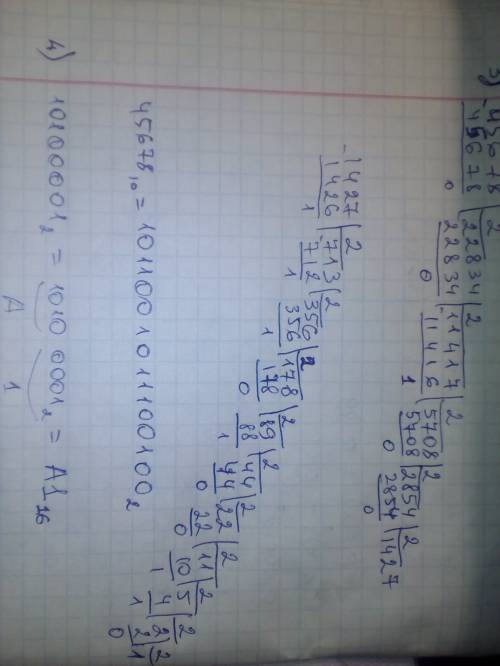 3) -45678 |2
45678 |22834 |2
0 22834 |11417 |2
0 11416 |5708 |2
1 5708 |2854 |2
0 2854 |1427
0
-1427 |2
1426 |713 |2
1 712 |356 |2
1 356 |178 |2
1 178 |89 |2
0 88 |44 |2
1 44 |22 |2
0 22 |11 |2
0 10 |5 |2
1 4 |2 |2
1 2 |1 |2
0
45678₁₀ = 1011001011100100₂
4) 10100001₂ = 1010 0001₂ = A1₁₆
A 1